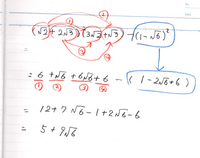 ① ②
(√2 + 2√3)(3√2 + √3) - (1 - √6)²
③ ④
= 6 + √6 + 6√6 + 6 - (1 - 2√6 + 6)
① ② ③ ④
= 12 + 7√6 - 1 + 2√6 - 6
= 5 + 9√6